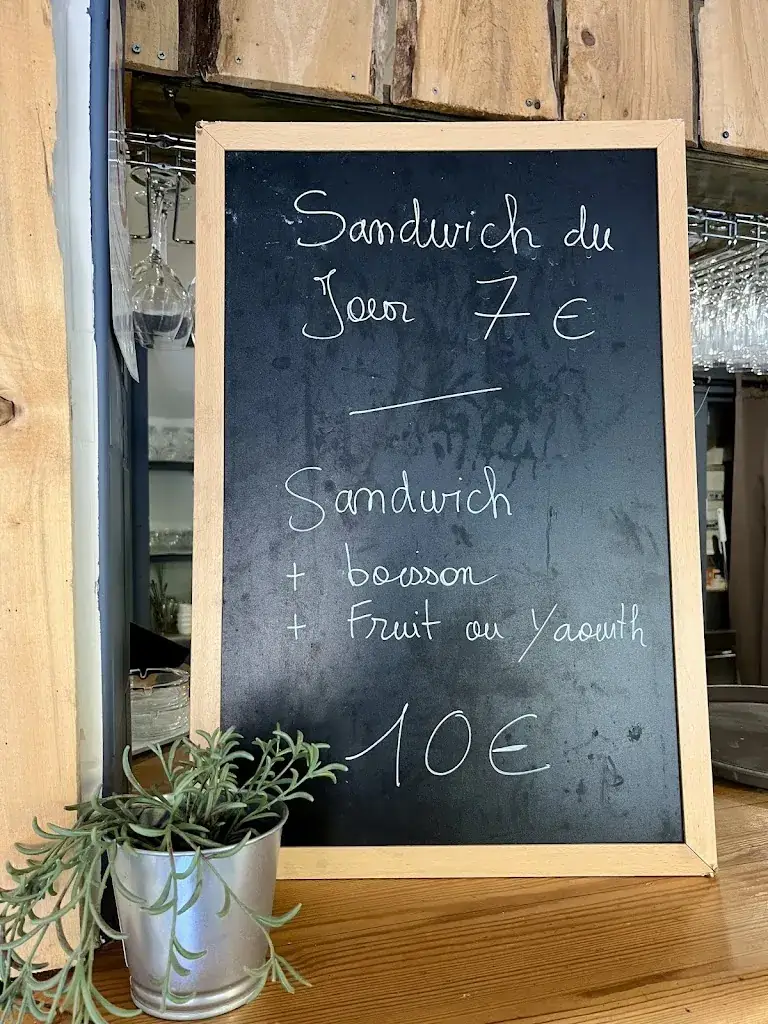 Sandwich du
Jour 7 €
Sandwich
+ boisson
+ Fruit ou Yaourth
10€